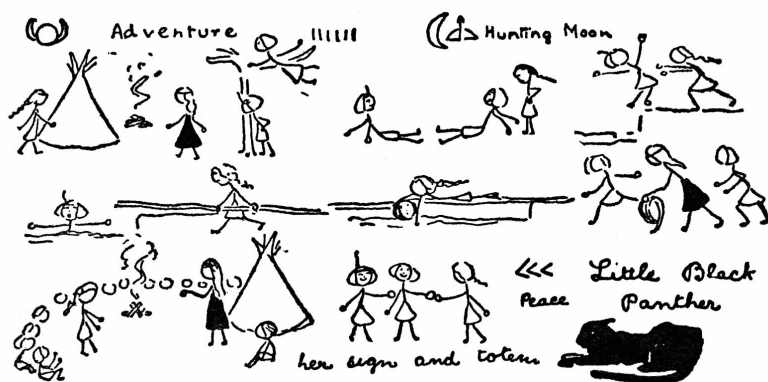 Adventure Hunting Moon
Little Black
Peace Panther
her sign and totem